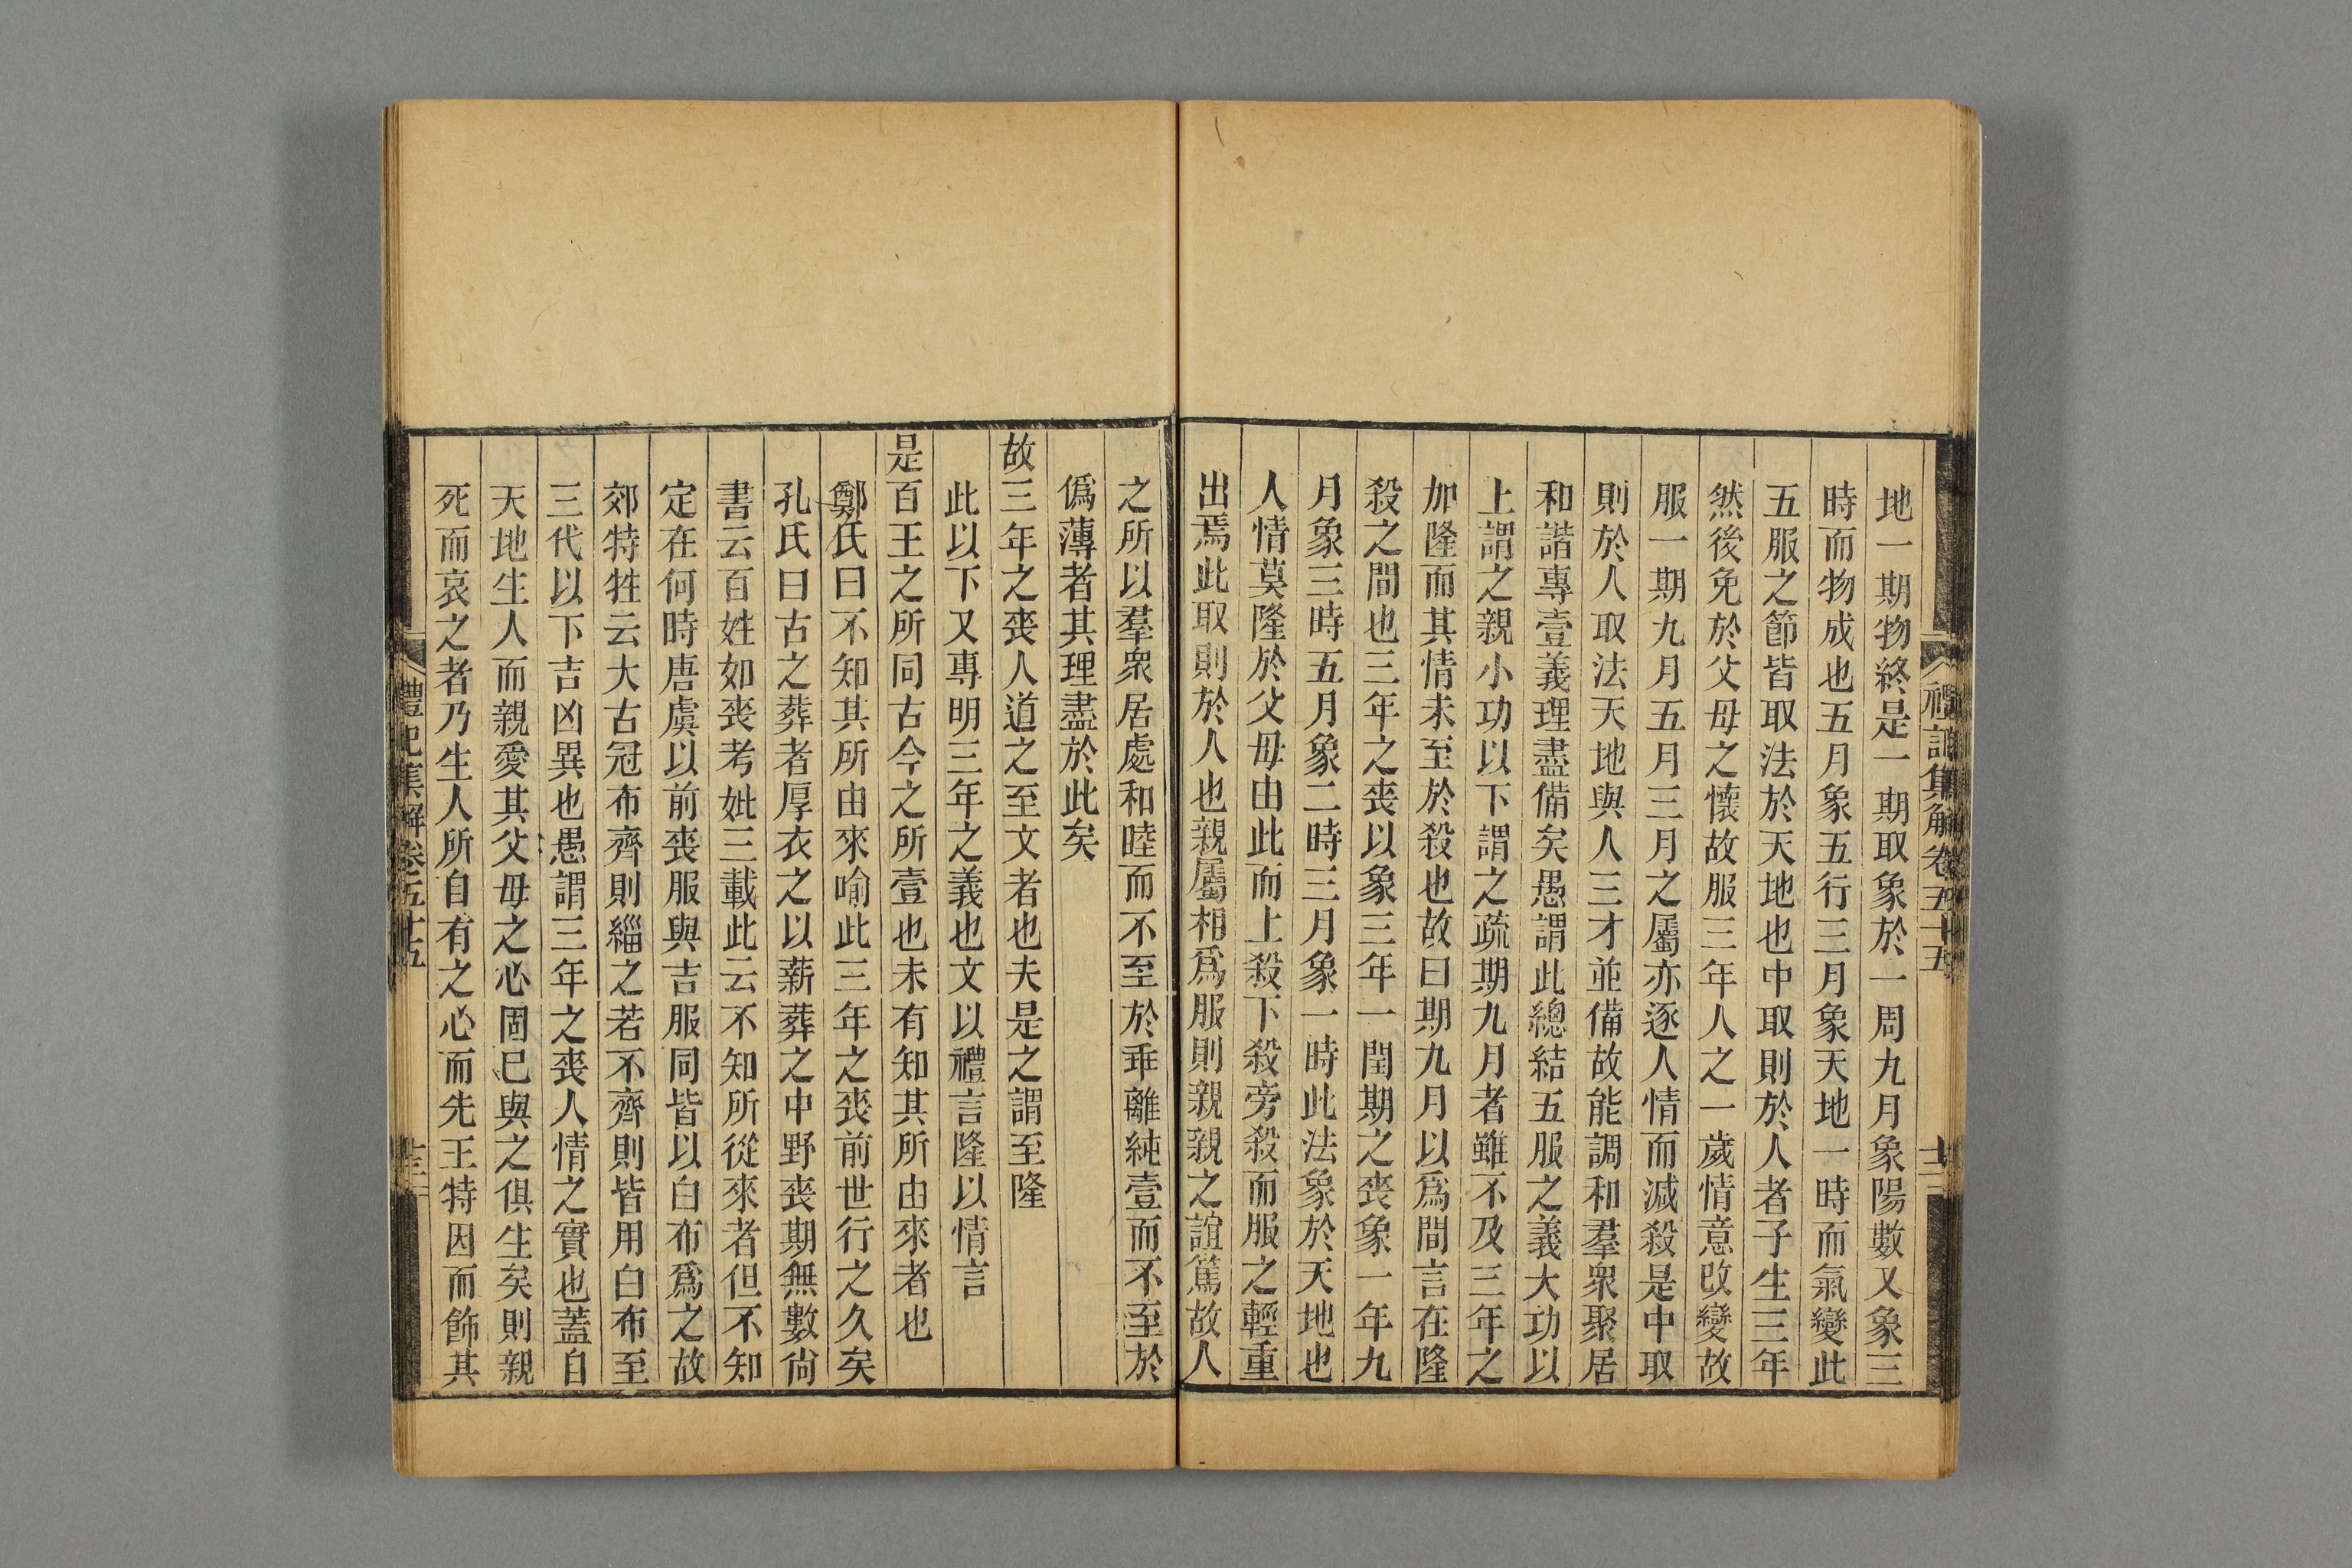 禮記集解卷五十五
地一期物終是一期取象於一周九月象陽數又象三
時而物成也五月象五行三月象天地一時而氣變此
五服之節皆取法於天地也中取則於人者子生三年
然後免於父母之懷故服三年人之一歲情意改變故
服一期九月五月三月之屬亦逐人情而減殺是中取
則於人取法天地與人三才並備故能調和羣衆聚居
和諧專壹義理盡備矣愚謂此總結五服之義大功以
上謂之親小功以下謂之疏期九月者雖不及三年之
加隆而其情未至於殺也故曰期九月以爲間言在隆
殺之間也三年之喪以象三年一閏期之喪象一年九
月象三時五月象二時三月象一時此法象於天地也
人情莫隆於父母由此而上殺下殺旁殺而服之輕重
出焉此取則於人也親屬相爲服則親親之誼篤故人
之所以羣衆居處和睦而不至於乖離純壹而不至於
僞薄者其理盡於此矣
故三年之喪人道之至文者也夫是之謂至隆
此以下又專明三年之義也文以禮言隆以情言
是百王之所同古今之所壹也未有知其所由來者也
鄭氏曰不知其所由來喻此三年之喪前世行之久矣
孔氏曰古之葬者厚衣之以薪葬之中野喪期無數尙
書云百姓如喪考妣三載此云不知所從來者但不知
定在何時唐虞以前喪服與吉服同皆以白布爲之故
郊特牲云大古冠布齊則緇之若不齊則皆用白布至
三代以下吉凶異也愚謂三年之喪人情之實也蓋自
天地生人而親愛其父母之心固已與之俱生矣則親
死而哀之者乃生人所自有之心而先王特因而飾其
禮記集解卷五十五